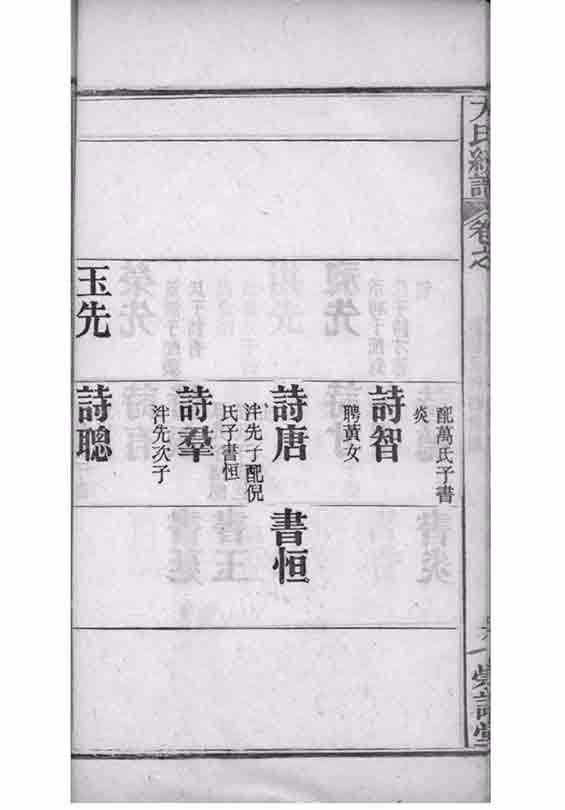 氏
卷之
配萬氏子書
炎
詩智
聘黃女
詩唐
泮先子配倪
氏子書恒
書恒
詩羣
泮先次子
玉先
詩聰